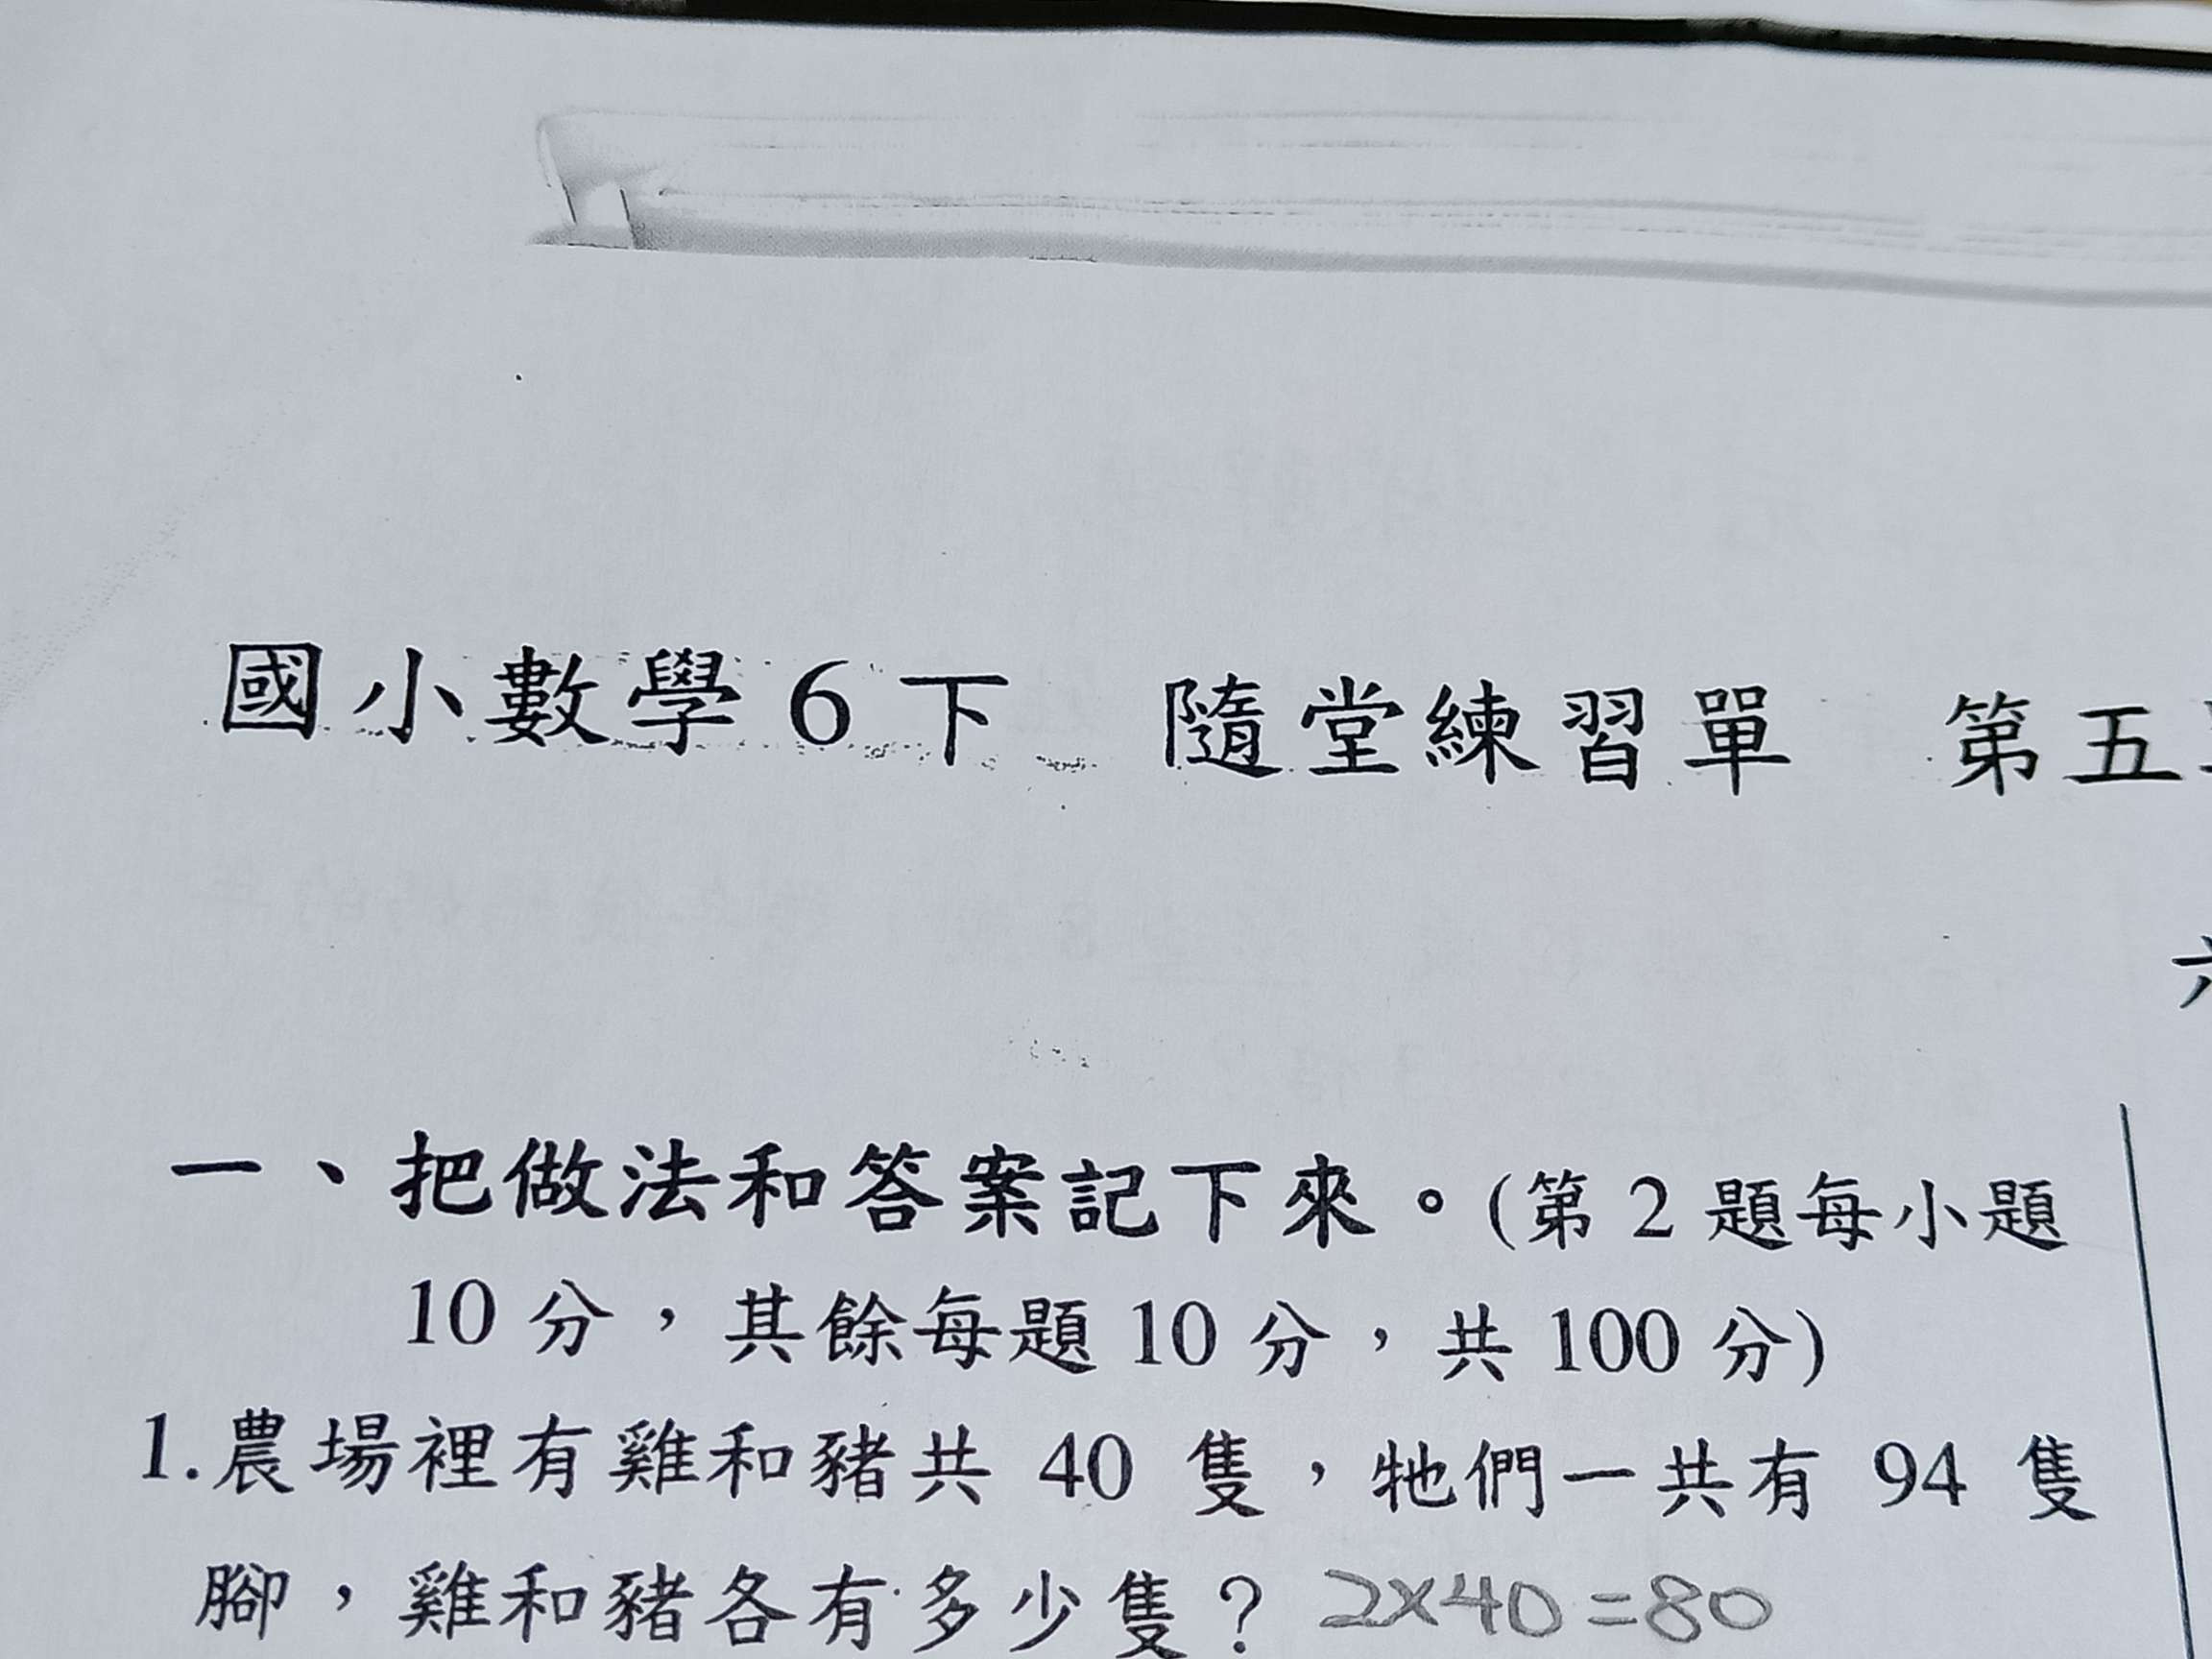 國小數學6下 隨堂練習單 第五
一、把做法和答案記下來。(第 2 題每小題
10 分,其餘每題 10 分,共 100 分)
1.農場裡有雞和豬共 40 隻,牠們一共有 94 隻
腳,雞和豬各有多少隻? 2×40=80